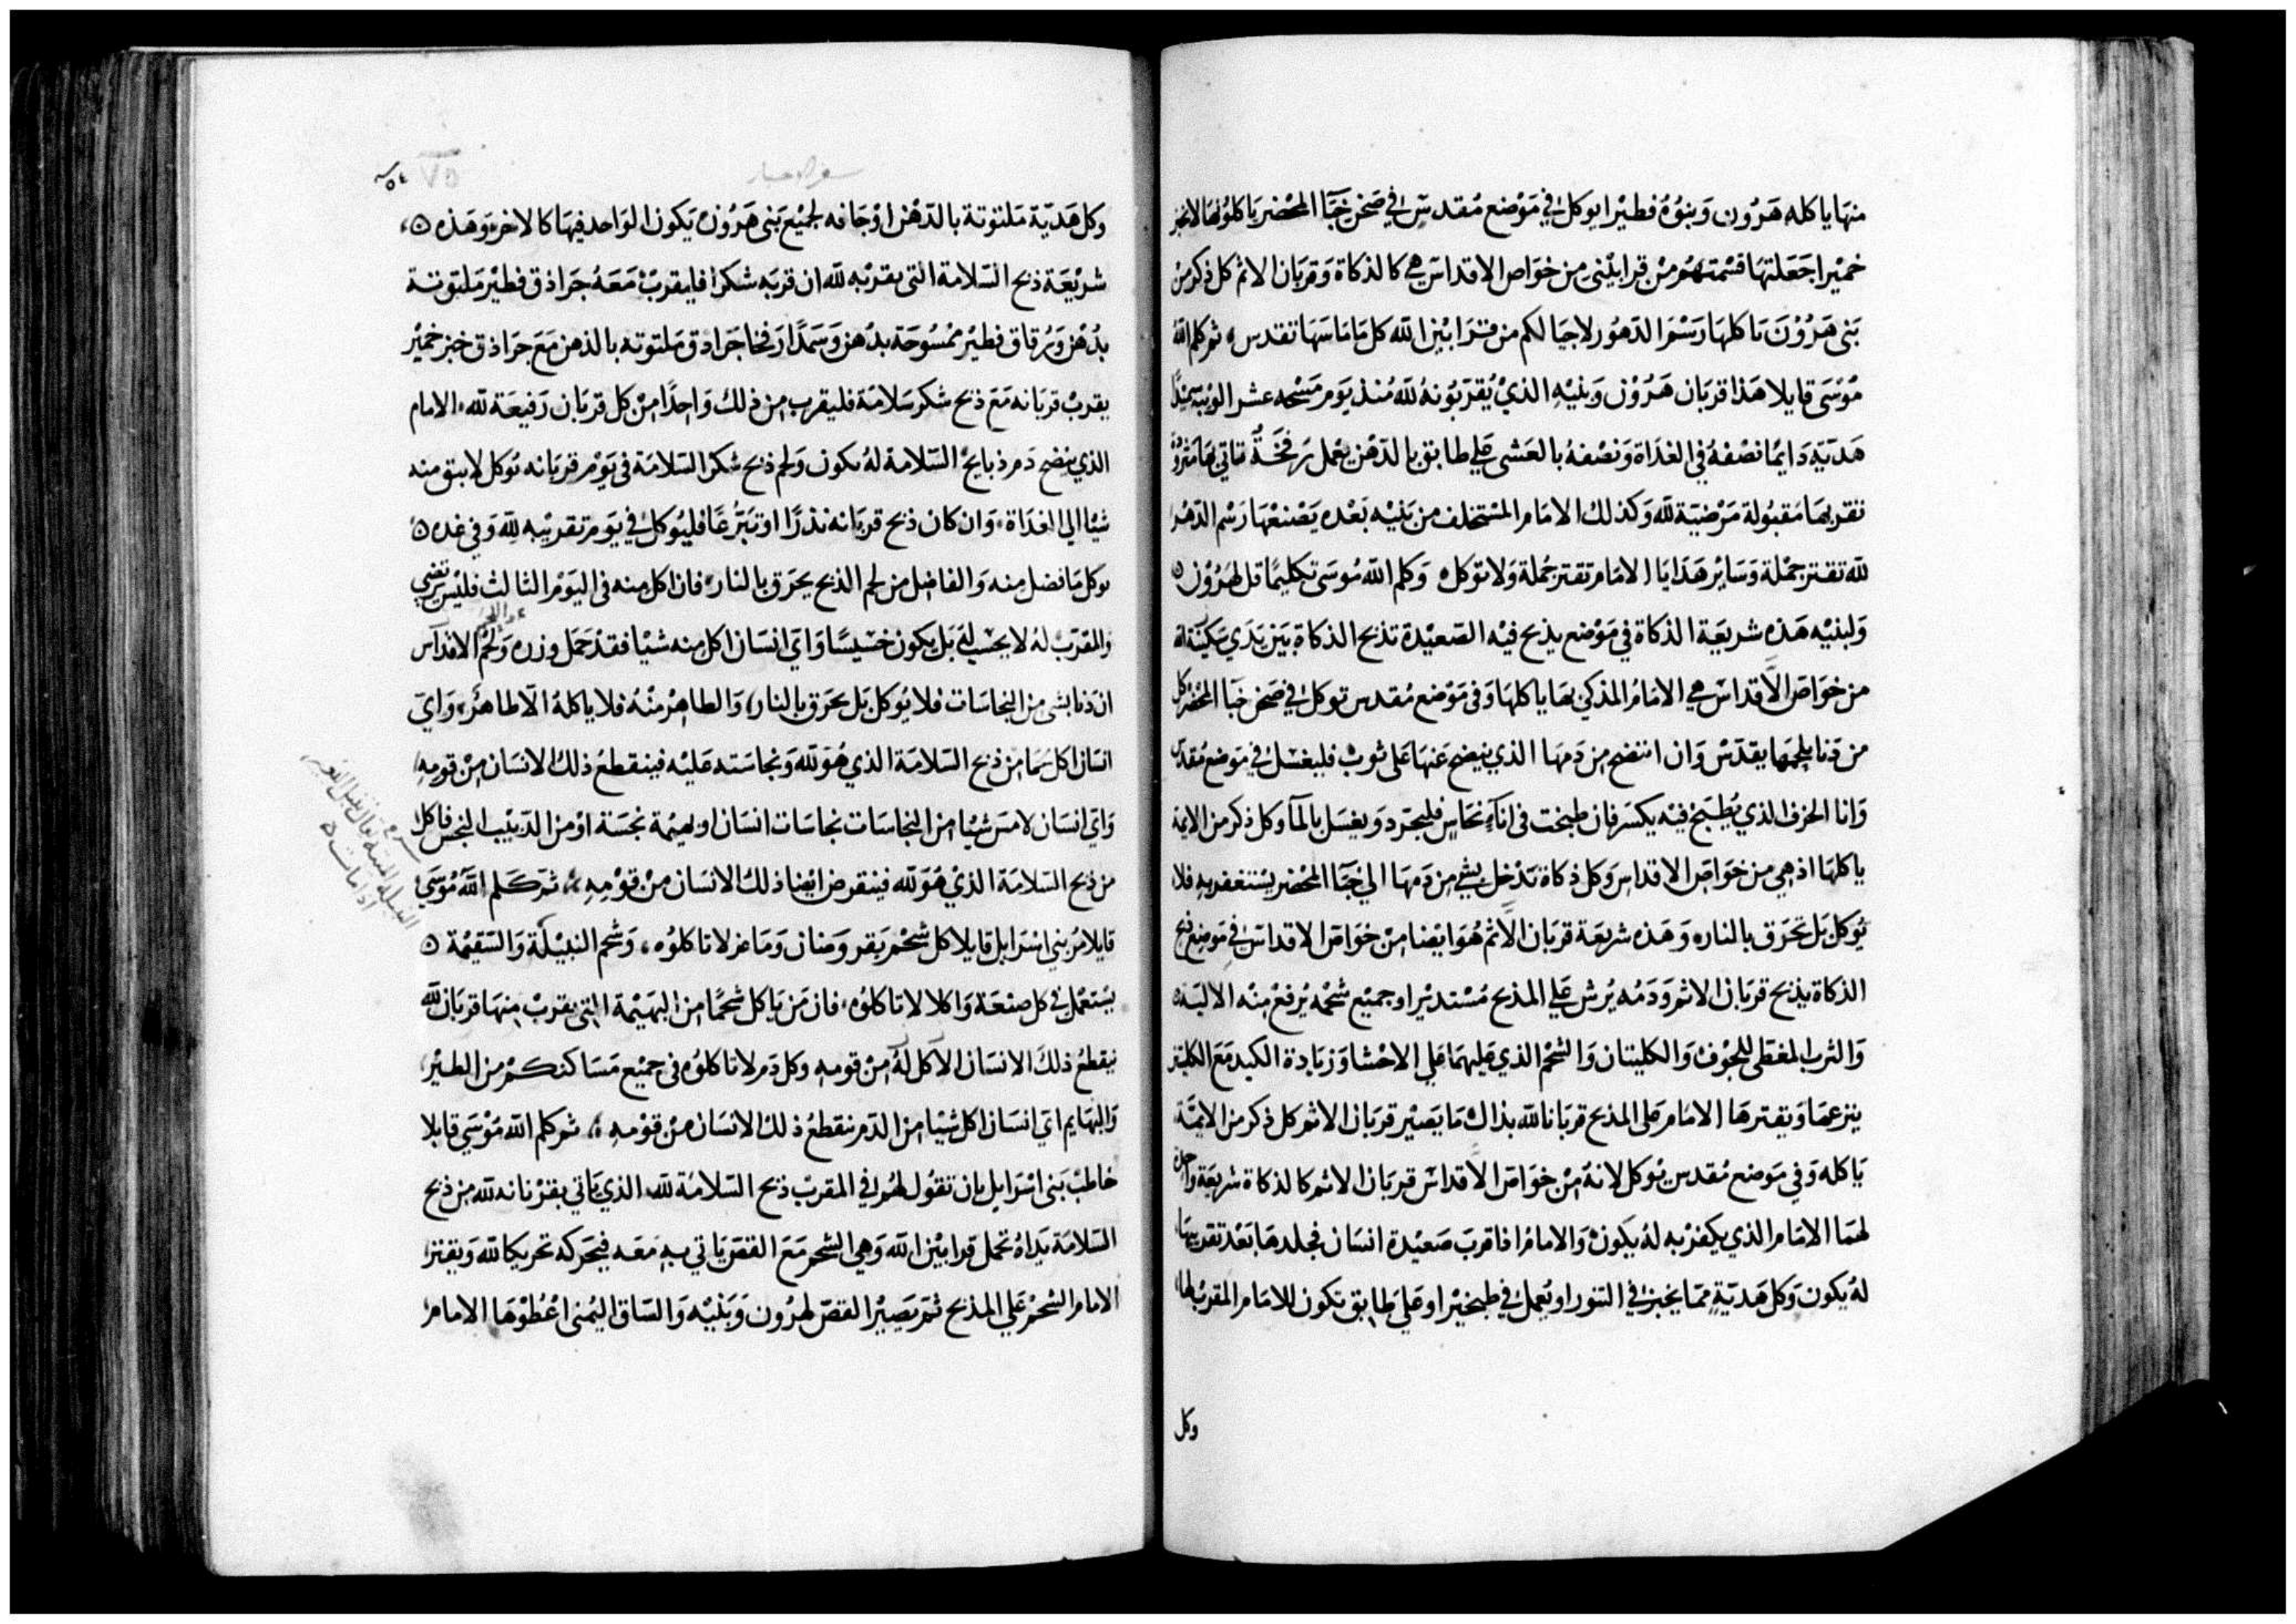 منها ياكله هرون وبنوه فطيرا يوكل في موضع مقدس في صحن خبا المحضر ياكلوها لا تخبز
خميرا جعلتها قسمتهم من قرابيني من خواص الاقداس هي كالذكاة وقربان الاثم كل ذكر من
بني هرون ياكلها رسم الدهور لاجيالكم من قرابين الله كل ما ماسها تقدس، ثم كلم الله
موسى قايلا هذا قربان هرون وبنيه الذي يقربونه لله منذ يوم مسحه عشر الويبه سميدا
هديه دايما نصفه في الغداة ونصفه بالعشي علي طابق بالدهن يعمل رفخة تاتي بها مثرودة
تقربها مقبولة مرضية لله وكذلك الامام المستخلف من بنيه بعده يصنعها رسم الدهر
لله تقتر جملة وساير هدايا الامام تقتر جملة ولا توكل ه وكلم الله موسى تكليما قل لهرون ه
ولبنيه هذه شريعة الذكاة في موضع يذبح فيه الصعيدة تذبح الذكاة بين يدي سكينة الله
من خواص الاقداس هي الامام المذكي بها ياكلها وفي موضع مقدس توكل في صحن خبا المحضر كل
من دنا بلحمها يقدس وان انتضح من دمها الذي ينضح عنها على ثوب فليغسل في موضع مقدس
وانا الخزف الذي يطبخ فيه يكسر فان طبخت في اناء نحاس فليجرد ويغسل بالما وكل ذكر من الايمة
ياكلها اذ هي من خواص الاقداس وكل ذكاة تدخل بشي من دمها الي خبا المحضر يستغفر به فلا
توكل بل تحرق بالنار ه وهذه شريعة قربان الاثم هو ايضا من خواص الاقداس في موضع ذبح
الذكاة يذبح قربان الاثم ودمه يرش علي المذبح مستديرا وجميع شحمه يرفع منه الالية ه
والثرب المغطى للجوف والكليتان والشحم الذي عليهما علي الاحشا وزيادة الكبد مع الكليتين
ينزعها ويقترها الامام علي المذبح قربانا لله بذاك ما يصير قربان الاثم كل ذكر من الايمة
ياكله وفي موضع مقدس يوكل لانه من خواص الاقداس قربان الاثم كالذكاة شريعة واحدة
لهما الامام الذي يكفر به له يكون والامام اذا قرب صعيدة انسان فجلدها بعد تقريبها
له يكون وكل هدية مما يخبز في التنور او يعمل في طبخير او علي طابق يكون للامام المقرب لها
وكل
سفر الاحبار
٧٥
وكل هدية ملتوتة بالدهن او جافه لجميع بني هرون يكون الواحد فيها كالاخر وهذه ه
شريعة ذبح السلامة التي يقربه لله ان قربه شكرا فليقرب معه جرادق فطير ملتوتة
بدهن ورقاق فطير ممسوحة بدهن وسمدا رفخا جرادق ملتوته بالدهن مع جرادق خبز خمير
يقرب قربانه مع ذبح شكر سلامة فليقرب من ذلك واحدا من كل قربان رفيعة لله، الامام
الذي ينضح دم ذبايح السلامة له يكون ولحم ذبح شكر السلامة في يوم قربانه يوكل لا يبق منه
شيا الي الغداة، وان كان ذبح قربانه نذرا او تبرعا فليوكل في يوم تقريبه لله وفي غده ه
يوكل ما فضل منه والفاضل من لحم الذبح يحرق بالنار، فان اكل منه في اليوم الثالث فليس يرتضي
والمقرب له لا يحسب له بل يكون خسيسا واي انسان اكل منه شيا فقد حمل وزره ولحم الاقداس
ان دنا بشي من النجاسات فلا يوكل بل يحرق بالنار، والطاهر منه فلا ياكله الا طاهر، واي
انسان اكل لحما من ذبح السلامة الذي هو لله ونجاسته عليه فينقطع ذلك الانسان من قومه
واي انسان لامس شيا من النجاسات نجاسات انسان او بهيمة نجسة او من الدبيب النجس فاكل
من ذبح السلامة الذي هو لله فينقرض ايضا ذلك الانسان من قومه، ثم كلم الله موسى
قايلا مر بني اسرايل قايلا كل شحم بقر وضان وماعز لا تاكلوه، وشحم النبيلة والسقيمة ه
يستعمل في كل صنعة واكلا لا تاكلوه، فان من ياكل شحما من البهيمة التي يقرب منها قربان لله
ينقطع ذلك الانسان الاكل له من قومه وكل دم لا تاكلوه في جميع مساكنكم من الطير
والبهايم اي انسان اكل شيا من الدم ينقطع ذلك الانسان من قومه، ثم كلم الله موسى قايلا
خاطب بني اسرايل بان تقول لهم في المقرب ذبح السلامة لله الذي ياتي بقربانه لله من ذبح
السلامة يداه تحمل قرابين الله وهي الشحم مع القص ياتي به معه فيحركه تحريكا لله ويقتر
الامام الشحم علي المذبح ثم يصير القص لهرون وبنيه والساق اليمنى اعطوها الامام